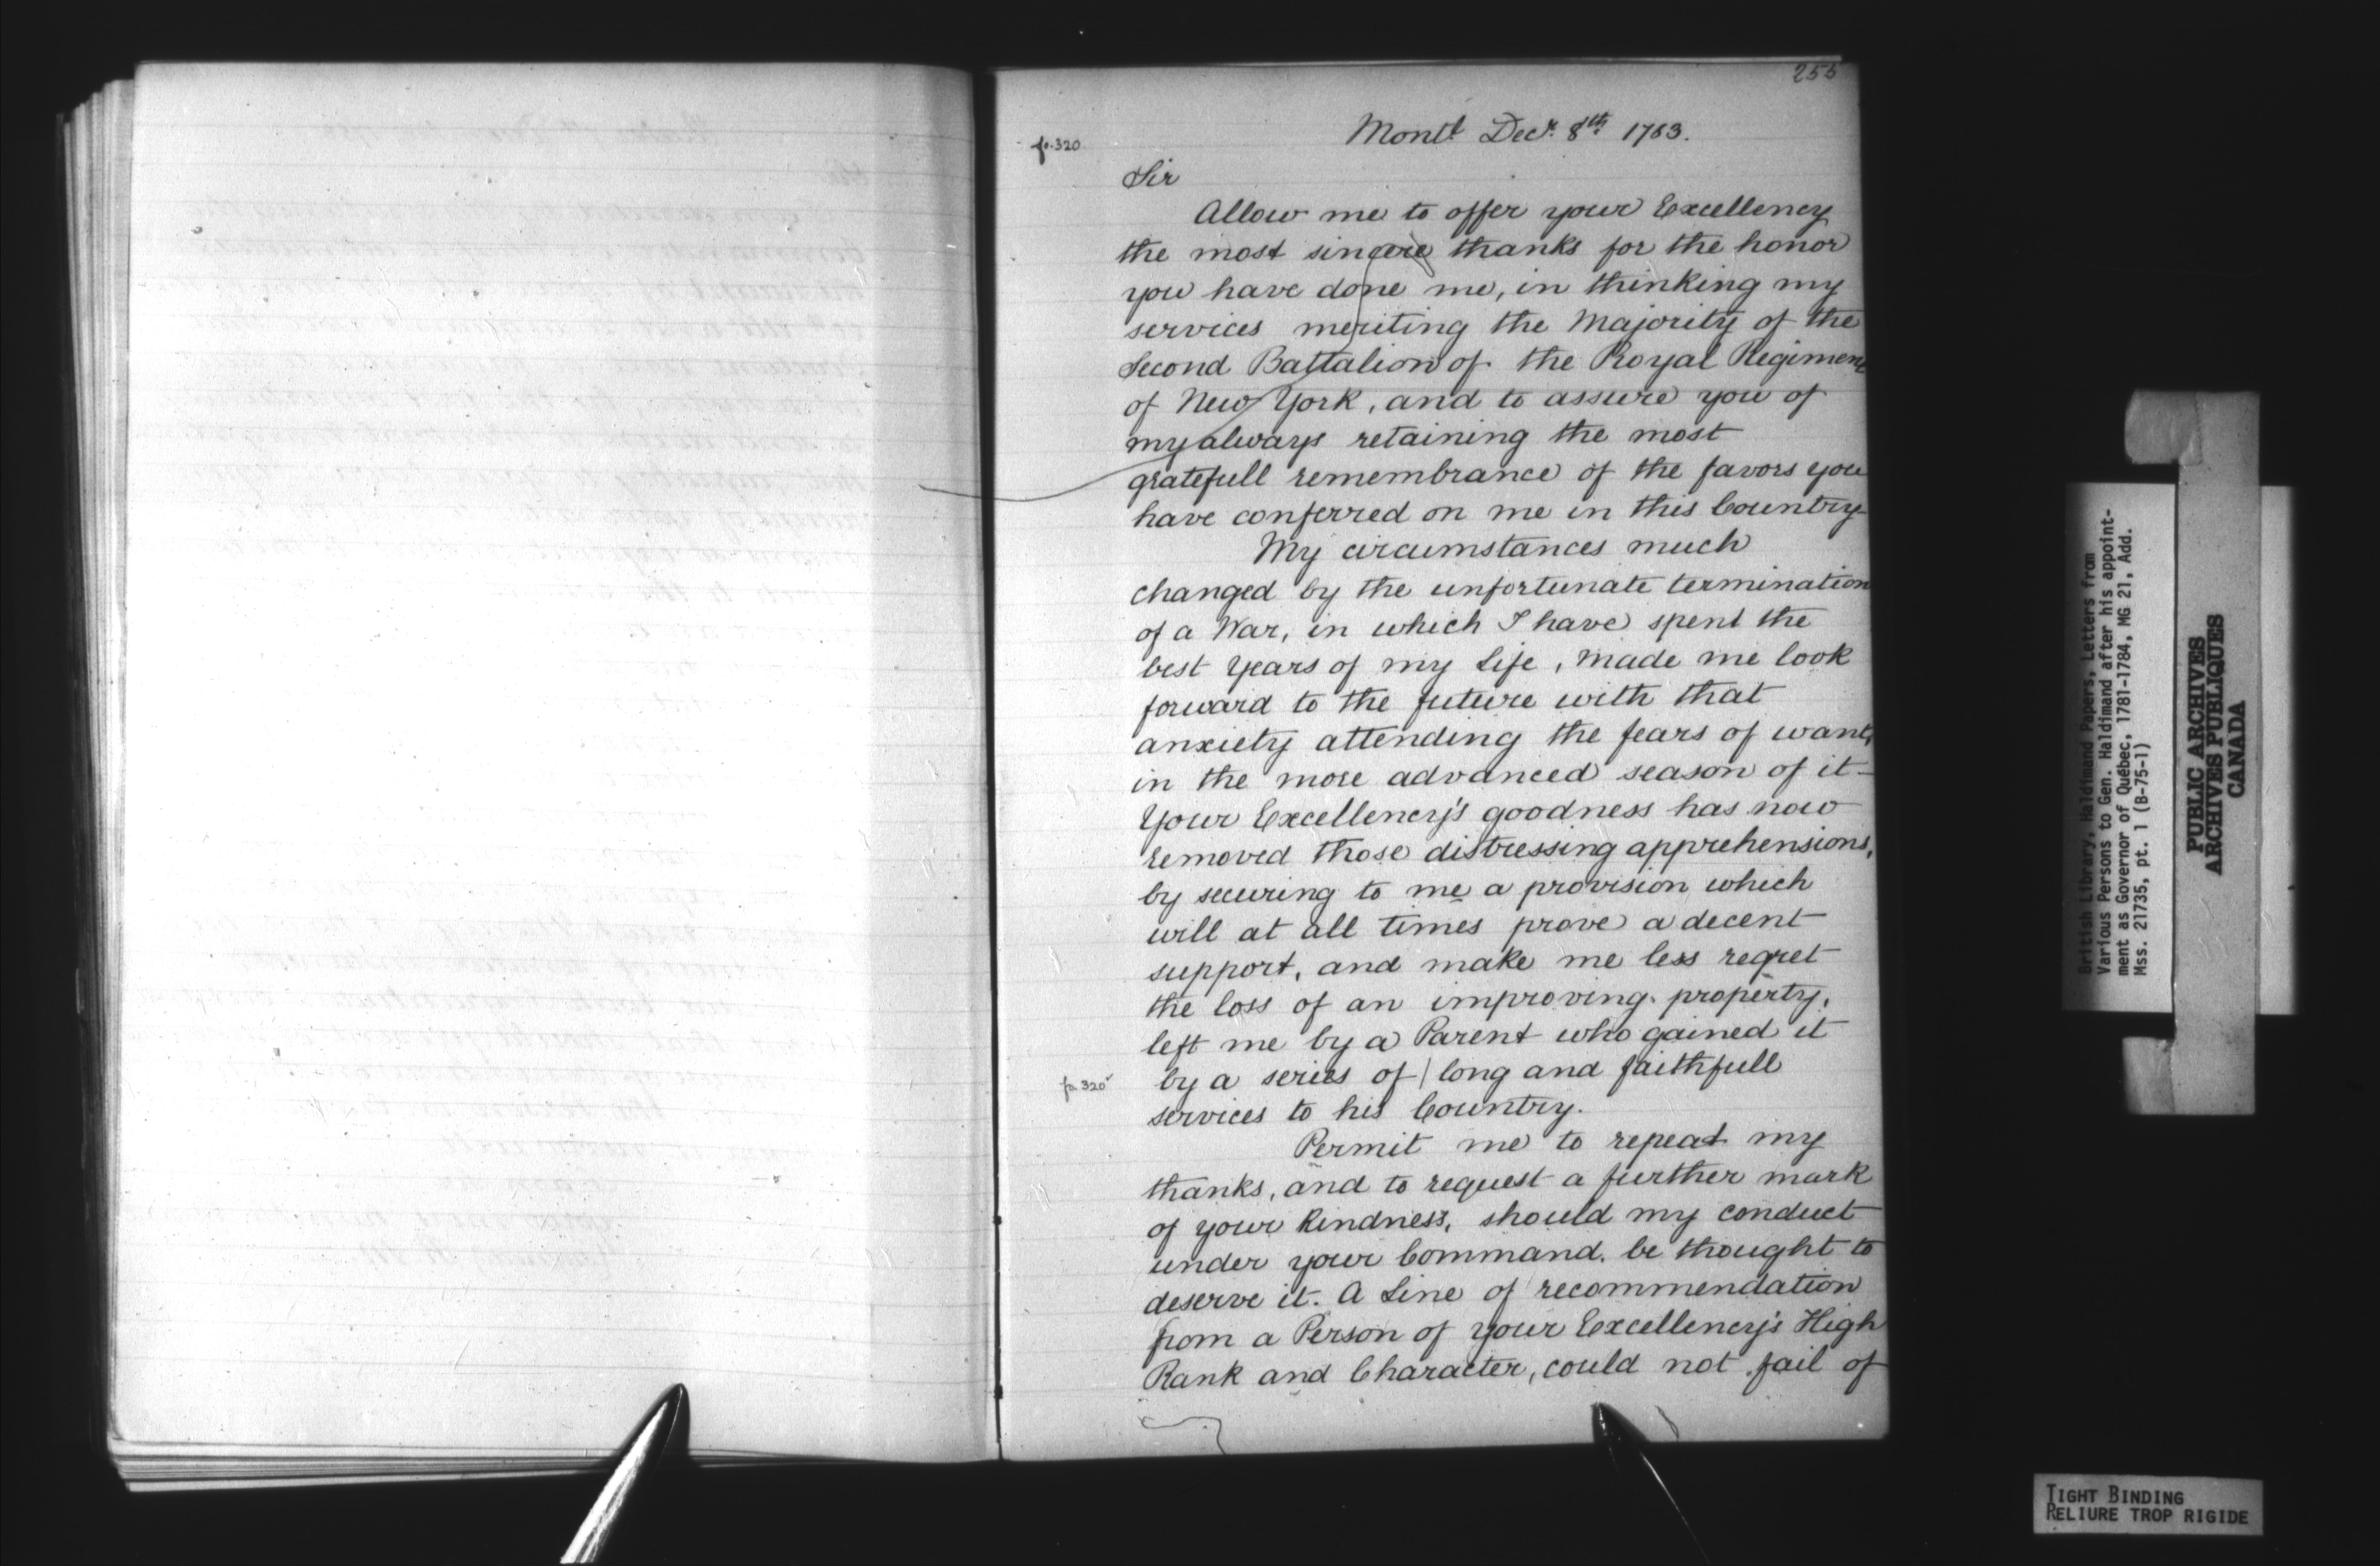 255
fo. 320
Montl. Decr. 8th 1783.
Sir
Allow me to offer your Excellency
the most sincere thanks for the honor
you have done me, in thinking my
services meriting the Majority of the
Second Battalion of the Royal Regiment
of New York, and to assure you of
my always retaining the most
gratefull remembrance of the favors you
have conferred on me in this Country
My circumstances much
changed by the unfortunate termination
of a War, in which I have spent the
best Years of my Life, made me look
forward to the future with that
anxiety attending the fears of want,
in the more advanced season of it-
Your Excellency's goodness has now
removed those distressing apprehensions,
by securing to me a provision which
will at all times prove a decent
support, and make me less regret
the loss of an improving property,
left me by a Parent who gained it
fo. 320v
by a series of | long and faithfull
services to his Country.
Permit me to repeat my
thanks, and to request a further mark
of your Kindness, should my conduct
under your Command. be thought to
deserve it. A Line of recommendation
from a Person of your Excellency's High
Rank and Character, could not fail of
British Library, Haldimand Papers, Letters from
Various Persons to Gen. Haldimand after his appoint-
ment as Governor of Québec, 1781-1784, MG 21, Add.
Mss. 21735, pt. 1 (B-75-1)
PUBLIC ARCHIVES
ARCHIVES PUBLIQUES
CANADA
TIGHT BINDING
RELIURE TROP RIGIDE